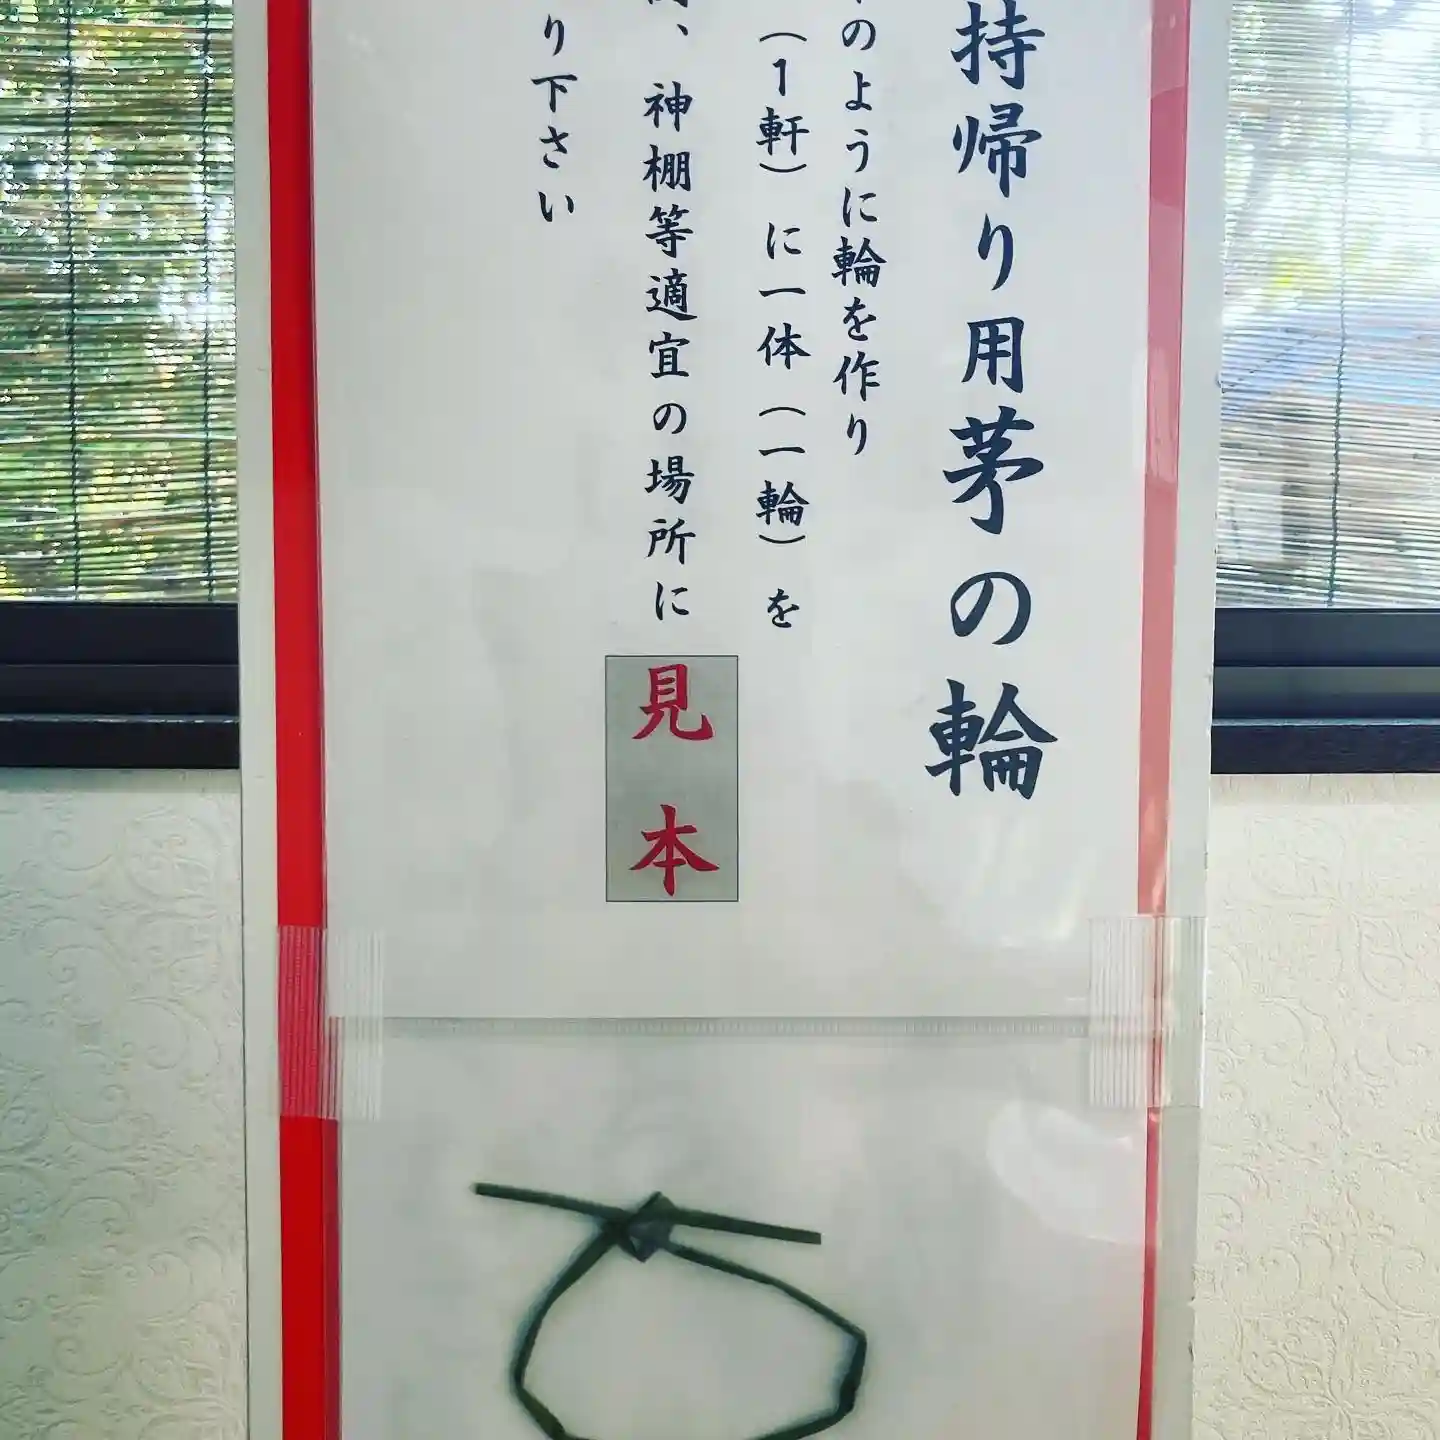 持帰り用茅の輪
のように輪を作り
（１軒）に一体（一輪）を
、神棚等適宜の場所に
り下さい
見本